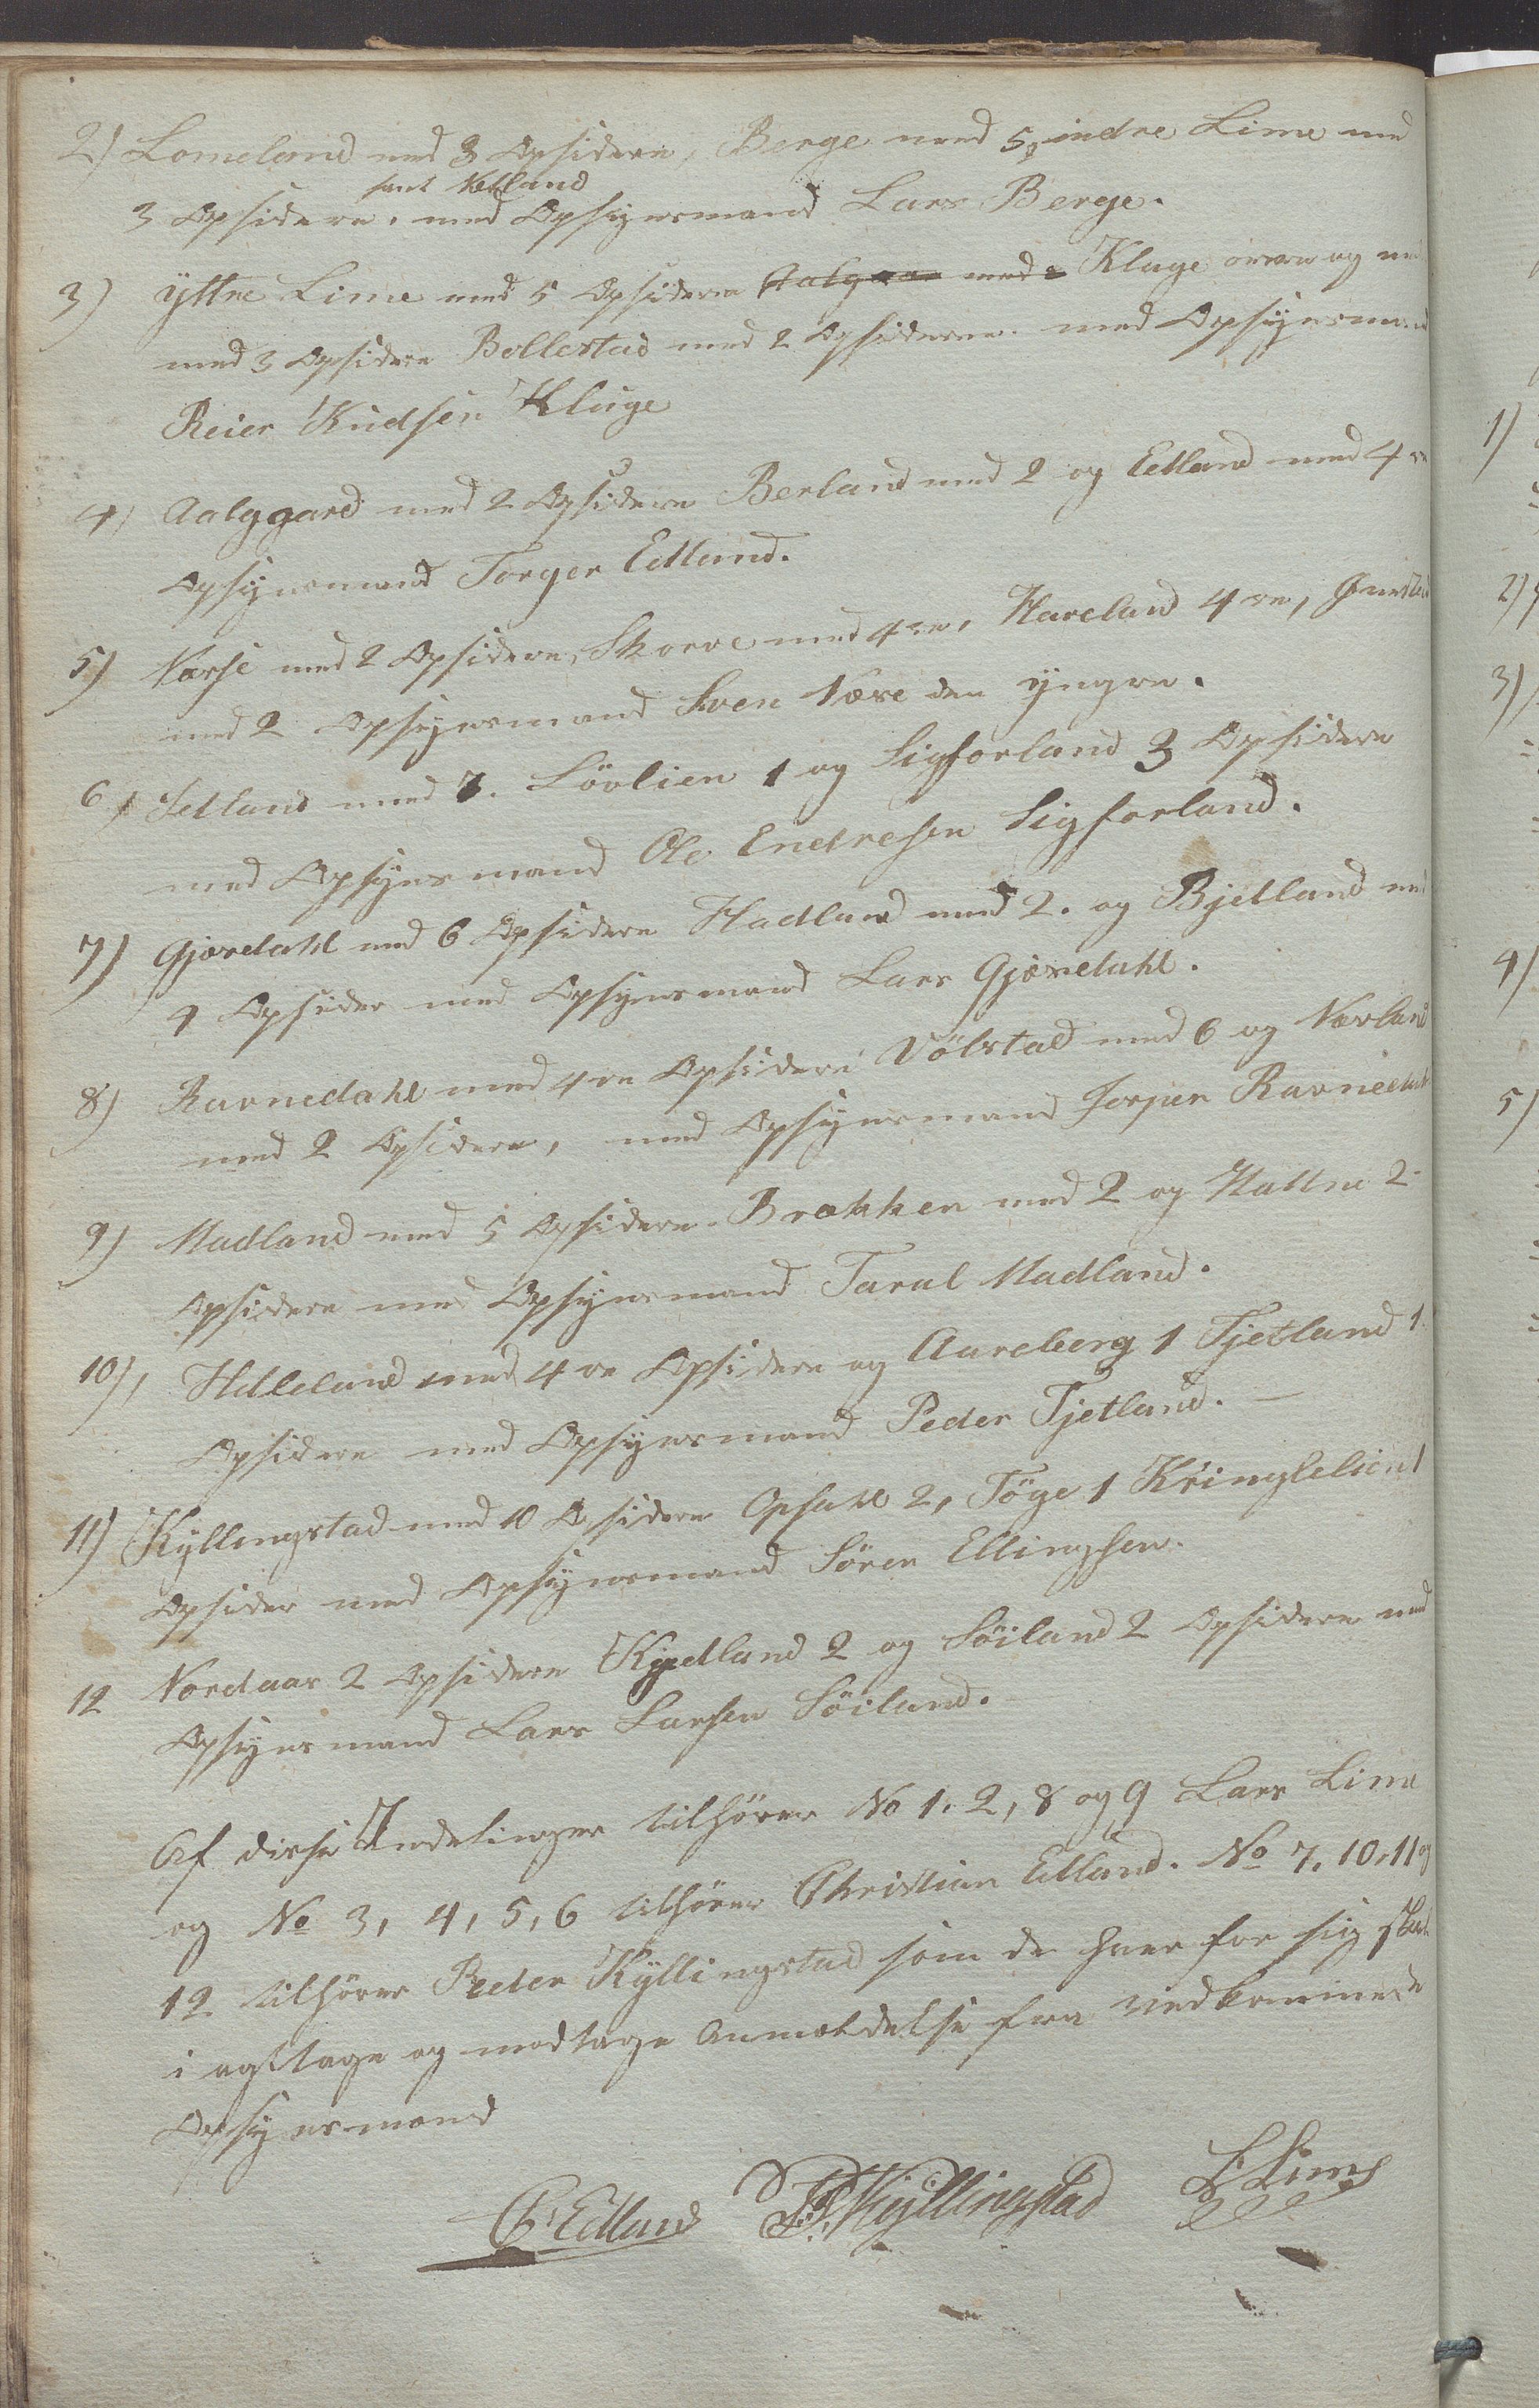 2) Lomeland med 3 Opsidere, Berge med 5, indre Lime med
samt Netland
3 Opsidere. med Opsynsmand Lars Berge.
3) yttre Lime med 5 Opsidere Aalgaar med 2 Kluge øvre og ne
med 3 Opsidere Bollestad med 2 Opsidere med Opsynsmand
Reier Knudsen Kluge
4) Aalggard med 2 Opsidere Berland med 2 og Edland med 4re
Opsynsmand Torger Edland.
5) Nærse med 2 Opsidere, Skorve med 4re, Haveland 4re,
med 2 Opsynsmand Sven Nære den yngre.
6) Jetland med 7. Lövlien 1 og Sigforland 3 Opsidere
med Opsynsmand Ole Endresen Sigforland.
7) Gjæredahl med 6 Opsidere Hadland med 2. og Bjelland med
4 Opsider med Opsynsmand Lars Gjæredahl.
8) Ravnedahl med 4re Opsidere Völstad med 6 og Nævland
med 2 Opsidere, med Opsynsmand Jorjen Ravnedahl
9) Madland med 5 Opsidere. Brækken med 2 og Hættne 2
Opsidere med Opsynsmand Taral Madland.
10), Helleland med 4re Opsidere og Aareberg 1 Tjetland 1
Opsidere med Opsynsmand Peder Tjetland. —
11) Kyllingstad med 10 Opsidere Opsahl 2, Töge 1 Kringlelien 1
Opsider med Opsynsmand Sören Ellingsen.
12 Nordaas 2 Opsidere Kjedland 2 og Söiland 2 Opsidere med
Opsynsmand Lars Larsen Söiland.
Af disse Indelinger tilhörer No 1. 2, 8 og 9 Lars Lime
og No 3, 4, 5, 6 tilhörer Christian Edland. No 7. 10. 11 og
12 tilhörer Peder Kyllingstad som de hver for sig skal
i agttage og modtage Anmeldelse fra vedkommende
Opsynsmand
C. Edland P. Kyllingstad L. Lime
1)
2)
3)
4)
5)